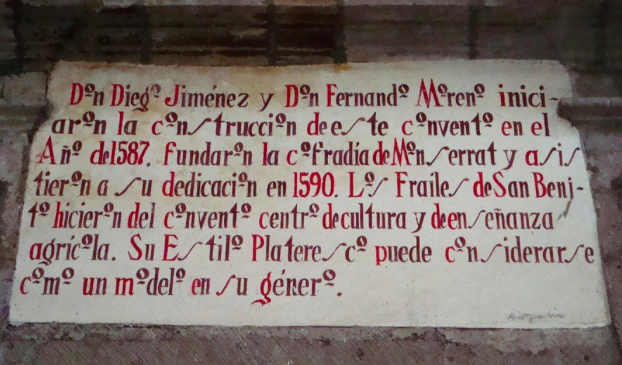 Don Diego Jiménez y Don Fernando Moreno inici-
aron la construcción de este convento en el
Año del 1587. Fundaron la cofradía de Monserrat y asis
tieron a su dedicación en 1590. Los Frailes de San Beni-
to hicieron del convento centro de cultura y de enseñanza
agrícola. Su Estilo Plateresco puede considerarse
como un modelo en su género.